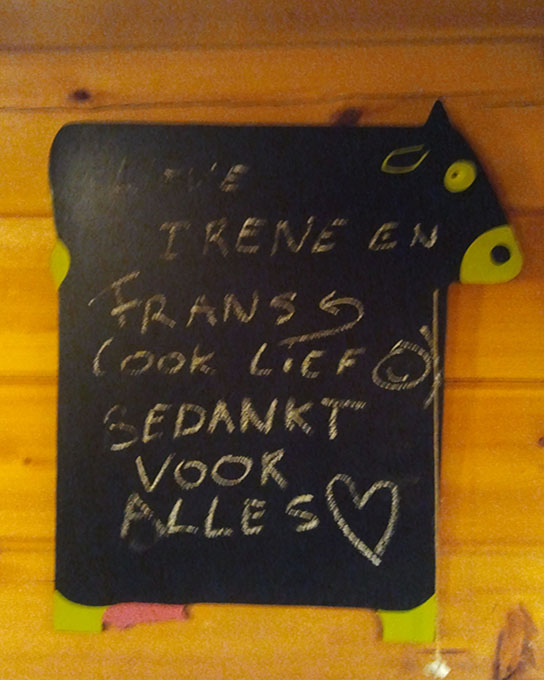 LIEVE
IRENE EN
FRANS
(OOK LIEF ☺)
BEDANKT
VOOR
ALLES ♡